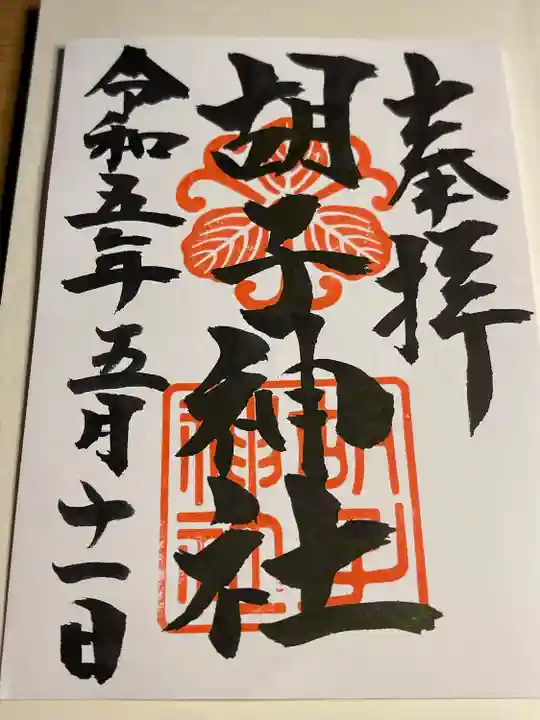 奉拝
胡子神社
令和五年五月十一日
胡子神社